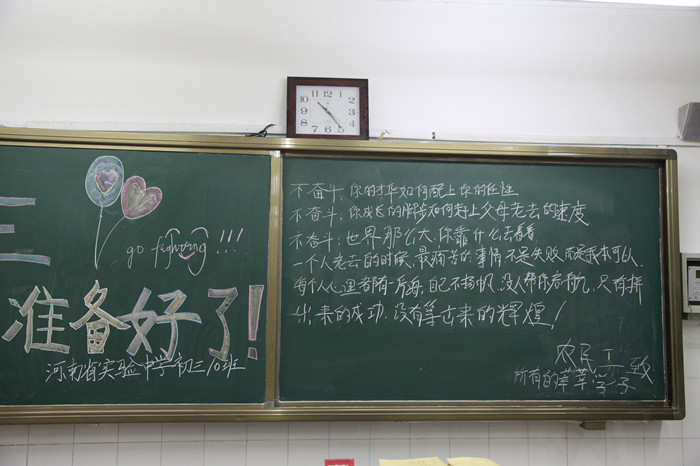 三
go fighting!!!
准备好了!
河南省实验中学初三10班
不奋斗,你的才华如何配上你的任性
不奋斗,你成长的脚步如何赶上父母老去的速度
不奋斗,世界那么大,你靠什么去看看
一个人老去的时候,最痛苦的事情,不是失败,而是我本可以,
每个人心里都有一片海,自己不扬帆,没人帮你启航,只有拼
出来的成功,没有等出来的辉煌!
农民工致
所有的莘莘学子
12
11
1
10
2
9
3
8
4
7
5
6